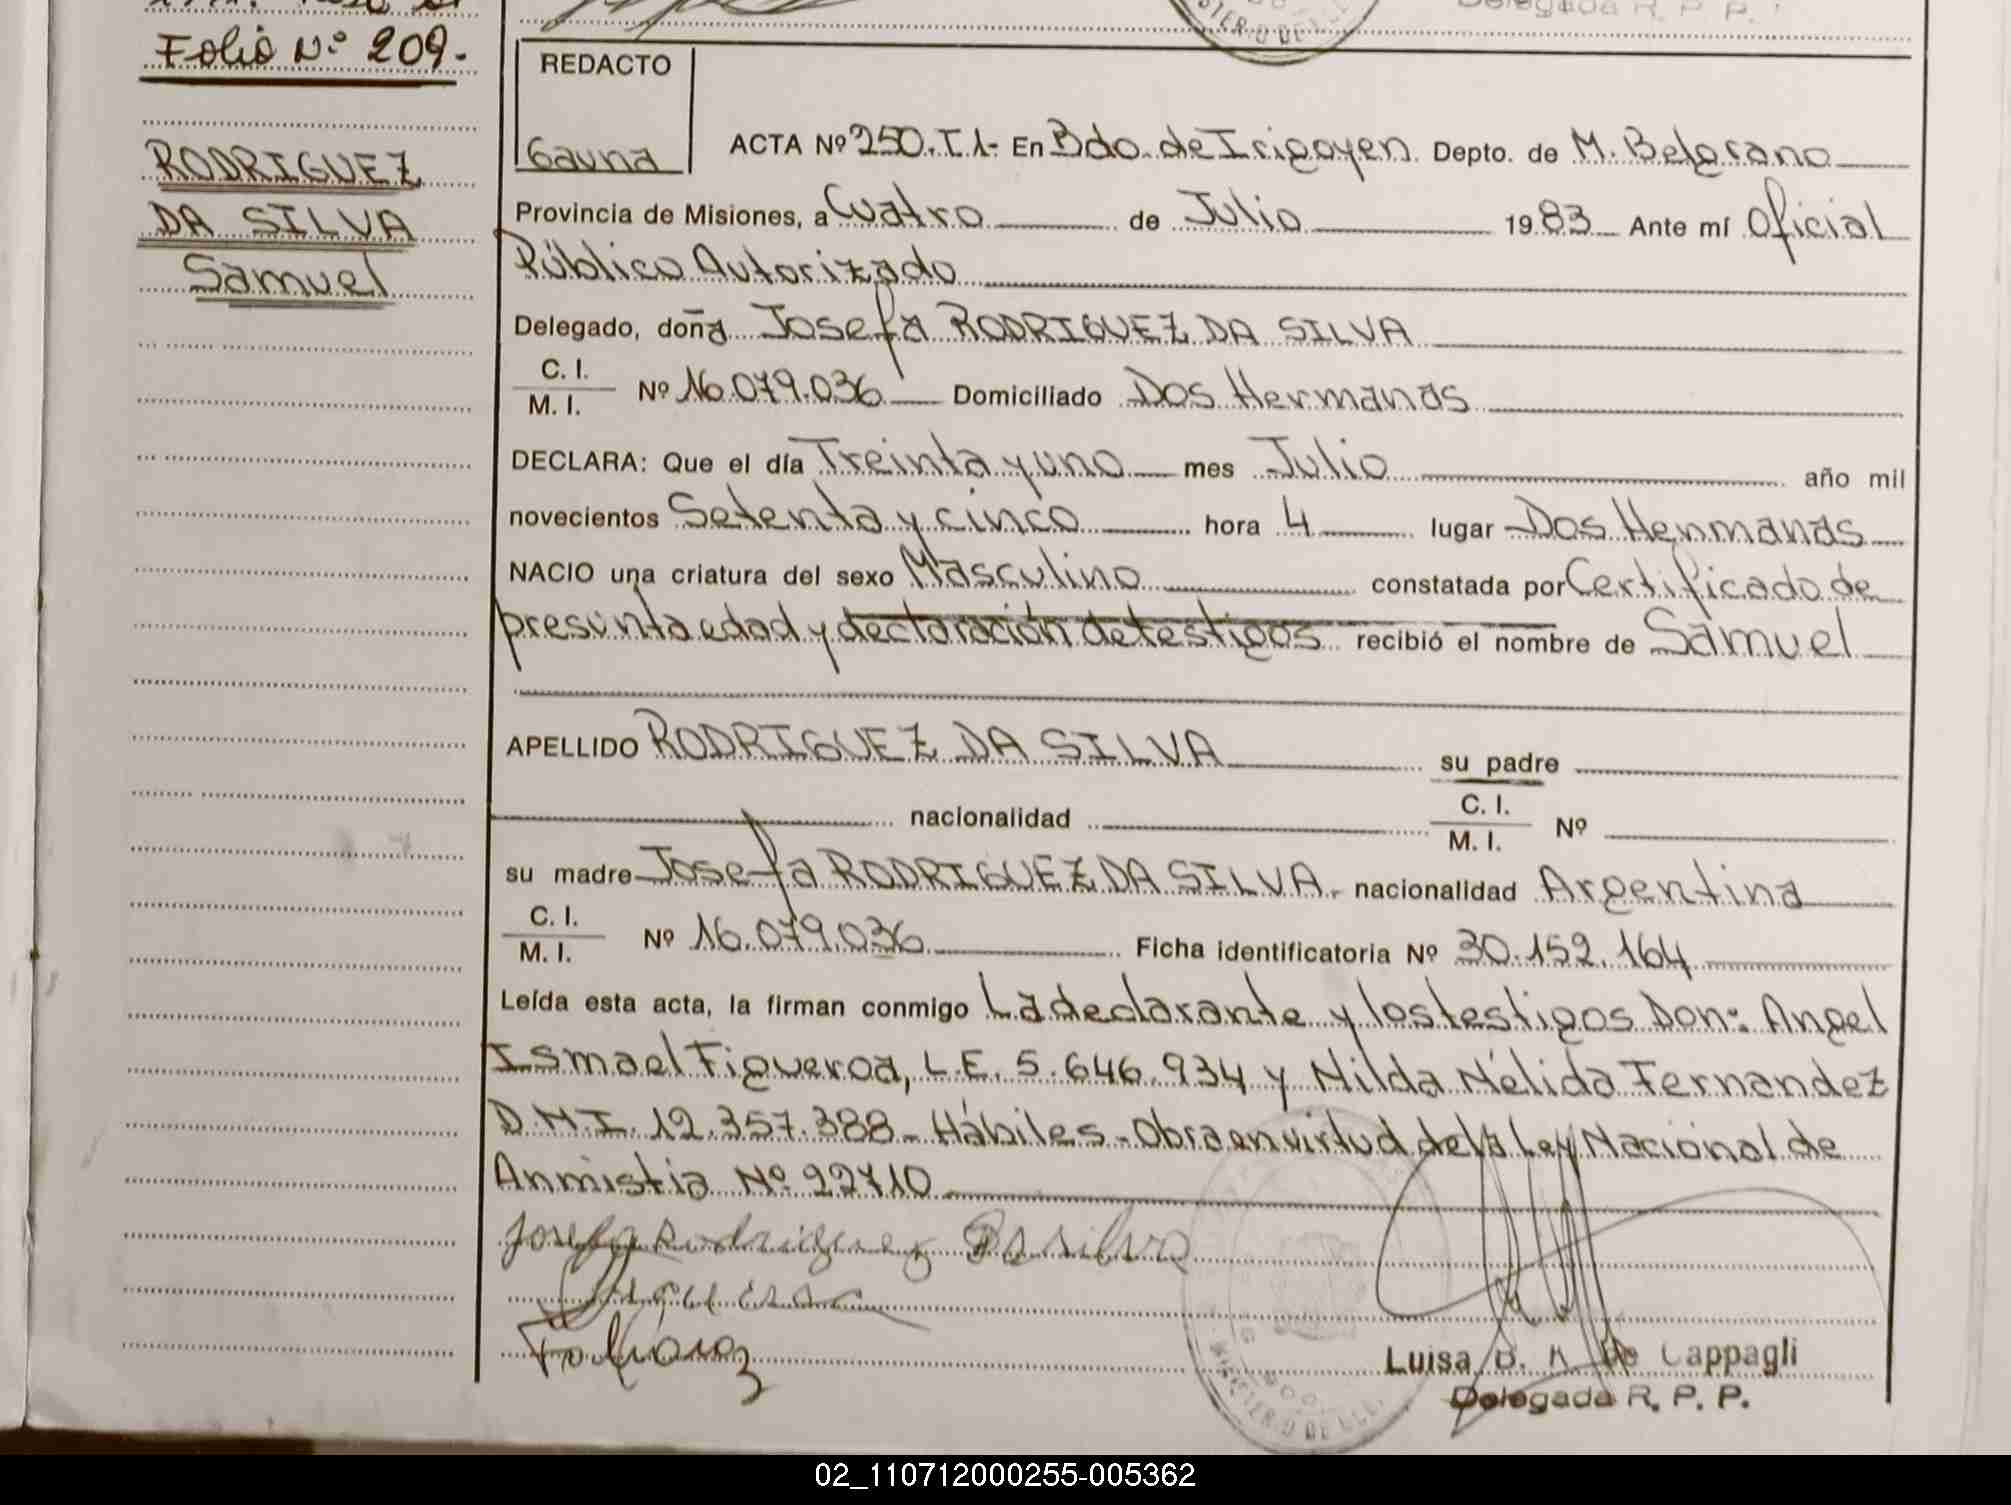 Folio Nº 209.-
RODRIGUEZ
DA SILVA
Samuel
Delegada R. P. P.
REDACTO
Gauna
ACTA Nº 250. T 1- En Bdo. de Irigoyen Depto. de M. Belgrano
Provincia de Misiones, a Cuatro de Julio 1983 Ante mí Oficial
Público Autorizado
Delegado, doña Josefa RODRIGUEZ DA SILVA
C. I.
M. I. Nº 16.079.036 Domiciliado Dos Hermanas
DECLARA: Que el día Treinta y uno mes Julio año mil
novecientos Setenta y cinco hora 4 lugar Dos Hermanas
NACIO una criatura del sexo Masculino constatada por Certificado de
presunta edad y declaración de testigos recibió el nombre de Samuel
APELLIDO RODRIGUEZ DA SILVA su padre
nacionalidad C. I.
M. I. Nº
su madre Josefa RODRIGUEZ DA SILVA. nacionalidad Argentina
C. I.
M. I. Nº 16.079.036 Ficha identificatoria Nº 30.152.164
Leída esta acta, la firman conmigo La declarante y los testigos Don: Angel
Ismael Figueroa, L.E. 5.646.934 y Nilda Nélida Fernandez
D.N.I. 12.357.388 - Hábiles - Obra en virtud de la Ley Nacional de
Anmistia Nº 22710
Josefa Rodriguez Da silva
Luisa B. K. de Cappagli
Delegada R. P. P.
02_110712000255-005362